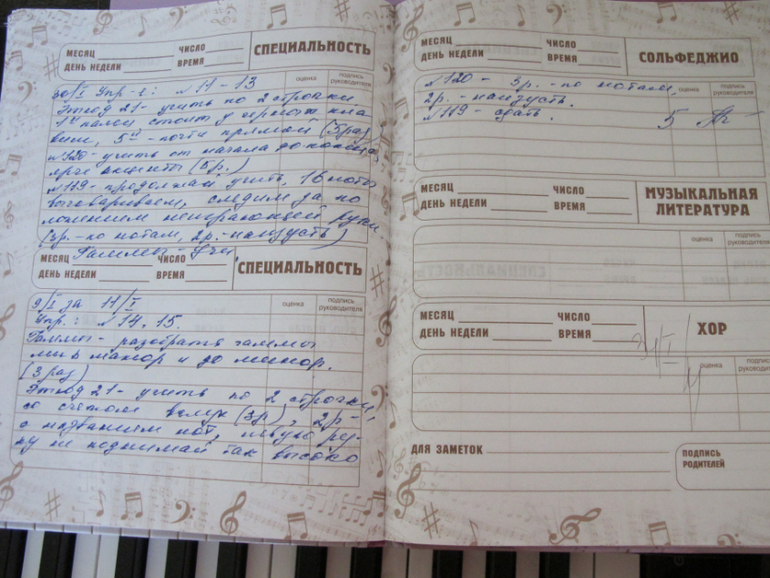 МЕСЯЦ ЧИСЛО
ДЕНЬ НЕДЕЛИ ВРЕМЯ
СПЕЦИАЛЬНОСТЬ
оценка подпись руководителя
30/I Упр-я: №11-13
Этюд 21- учить по 2 строчки
1ый палец стоит у черного кла
виш, 5ый - почти прямой (3 раз)
№120- учить от начала до конца,
ярче акценты (5р.)
№119- продолжай учить, 16 ноты
выговариваем, следим за по
ложением неиграющей руки
(3р.- по нотам, 2р.- наизусть)
Гаммы- Учи,
МЕСЯЦ ЧИСЛО
ДЕНЬ НЕДЕЛИ ВРЕМЯ
СПЕЦИАЛЬНОСТЬ
оценка подпись руководителя
9/I за 11/I
Упр.: №14, 15.
Гаммы- разобрать гаммы
ми мажор и до минор.
(3 раз)
Этюд 21- учить по 2 строчки,
со счётом вслух (3р), 2р-
с названием нот, левую ру-
ку не поднимай так высоко
МЕСЯЦ ЧИСЛО
ДЕНЬ НЕДЕЛИ ВРЕМЯ
СОЛЬФЕДЖИО
оценка подпись руководителя
№120- 3р.- по нотам,
2р.- наизусть.
№119- сдать. 5
МЕСЯЦ ЧИСЛО
ДЕНЬ НЕДЕЛИ ВРЕМЯ
МУЗЫКАЛЬНАЯ
ЛИТЕРАТУРА
оценка подпись руководителя
МЕСЯЦ ЧИСЛО
ДЕНЬ НЕДЕЛИ ВРЕМЯ
ХОР
оценка подпись руководителя
ДЛЯ ЗАМЕТОК
ПОДПИСЬ
РОДИТЕЛЕЙ